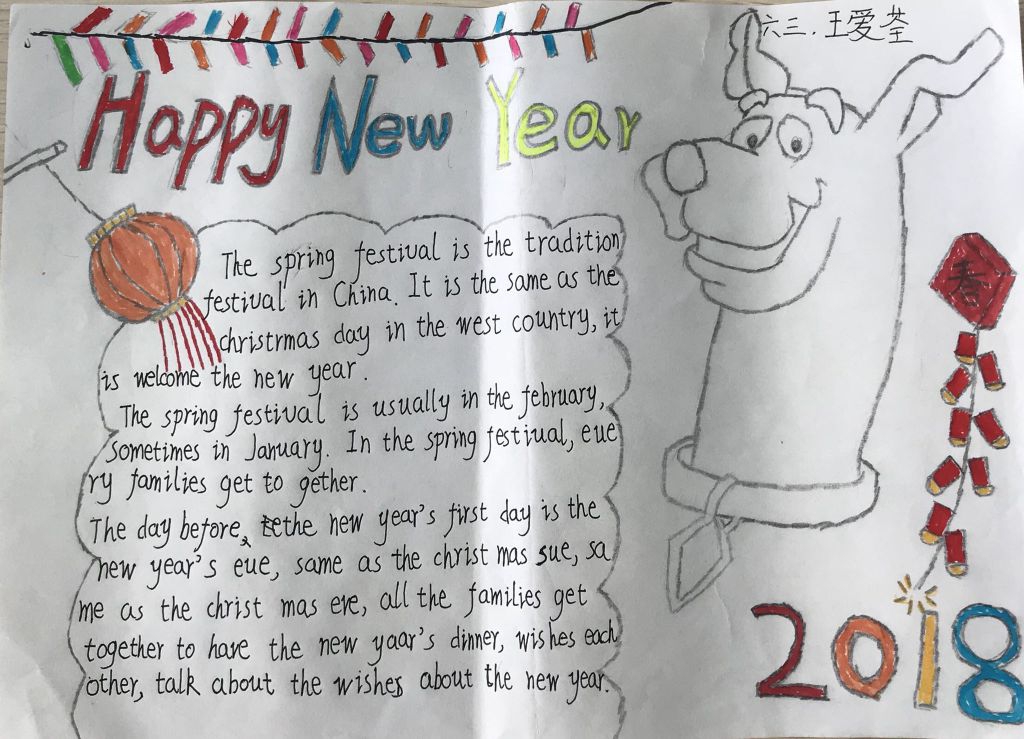 六三.王爱荃
Happy New Year
The spring festival is the tradition
festival in China. It is the same as the
christmas day in the west country, it
is welcome the new year.
The spring festival is usually in the february,
sometimes in January. In the spring festiual, eue
ry families get to gether.
The day before, the new year's first day is the
new year's eue, same as the christ mas sue, sa
me as the christ mas eve, all the families get
together to have the new yaar's dinner, wishes each
other, talk about the wishes about the new year.
春
2018